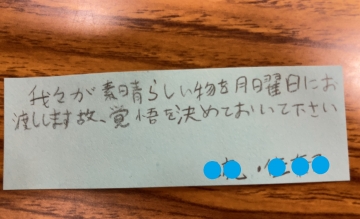 我々が素晴らしい物を月曜日にお
渡しします故、覚悟を決めておいて下さい